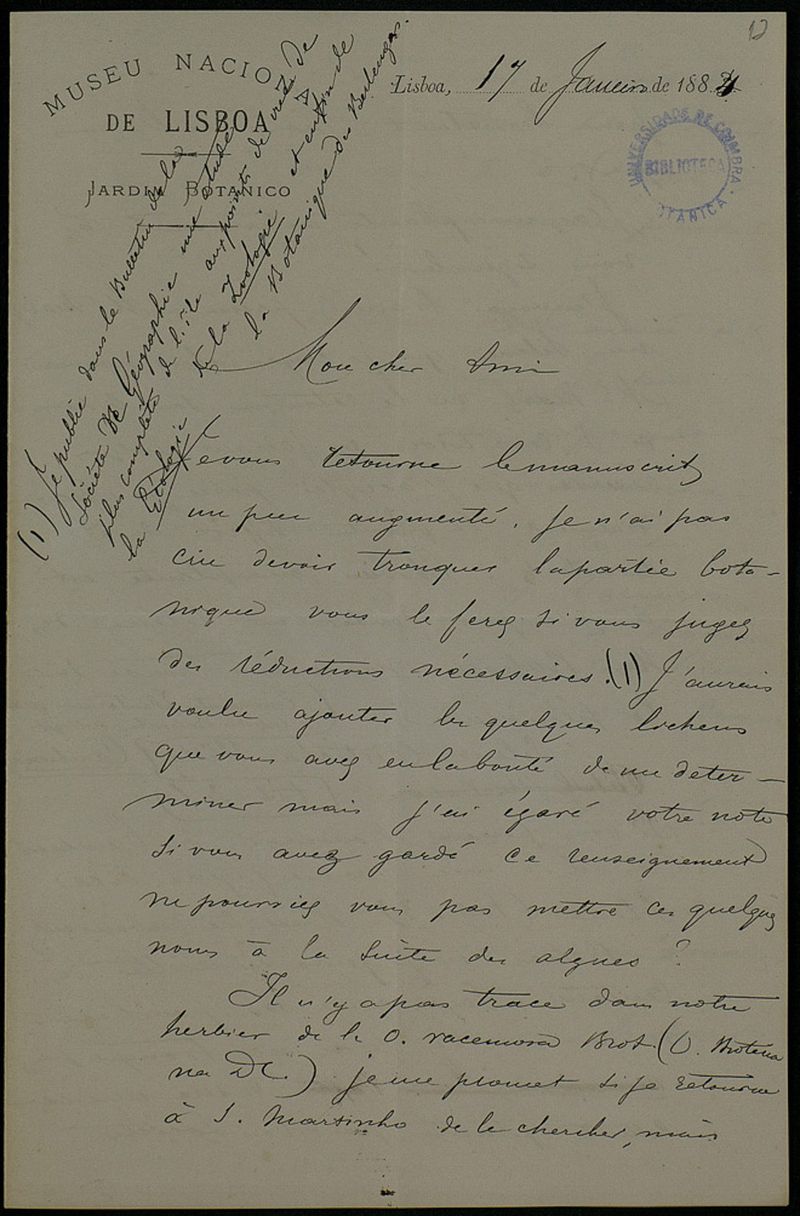 12
MUSEU NACIONAL
DE LISBOA
JARDIM BOTANICO
Lisboa, 17 de Janeiro de 1884
UNIVERSIDADE DE COIMBRA
BIBLIOTECA
BOTANICA
(1) Je publie dans le Bulletin de la
Société de Géographie une étude
plus complète de l'île aux points de vue de
la Géologie de la Zoologie et enfin de
la Botanique des Berlengas.
Mon cher Ami
Je vous retourne le manuscrit
un peu augmenté. Je n'ai pas
cru devoir tronquer la partie bota-
nique vous le ferez si vous jugez
des réductions nécessaires. (1) J'aurais
voulu ajouter les quelques lichens
que vous avez eu la bonté de me deter-
miner mais j'ai égaré votre note
si vous avez gardé ce renseignement
ne pourriez vous pas mettre ces quelques
noms à la suite des algues ?
Il n'y a pas trace dans notre
herbier de le O. racemosa Brot. (O. Brotería
na DC.) je me promet si je retourne
à S. Martinho de le chercher, mais